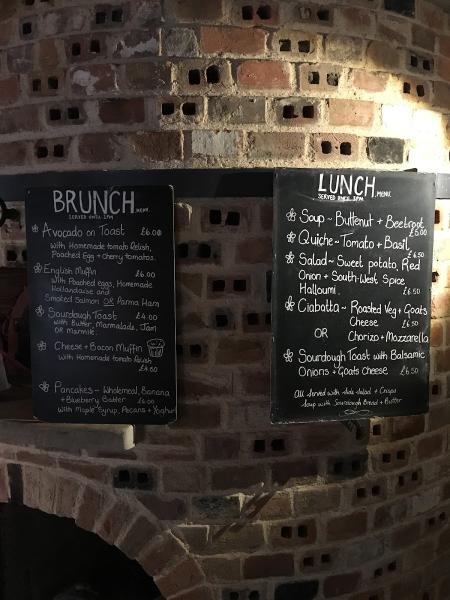 BRUNCH MENU
SERVED UNTIL 1PM
Avocado on Toast £6.00
with Homemade tomato Relish,
Poached Egg + cherry tomatoes.
English Muffin £6.00
with Poached eggs, Homemade
Hollandaise and
Smoked Salmon OR Parma Ham
Sourdough Toast £4.00
with Butter, Marmalade, Jam
OR marmite.
Cheese + Bacon Muffin
with Homemade tomato Relish
£4.50
Pancakes - Wholemeal, Banana
+ Blueberry Batter £6.00
with Maple Syrup, Pecans + Yoghurt
LUNCH MENU
SERVED UNTIL 3PM
Soup ~ Butternut + Beetroot
£5.00
Quiche - Tomato + Basil
£6.50
Salad ~ Sweet potato, Red
Onion + South-West Spice
Halloumi. £6.50
Ciabatta ~ Roasted Veg + Goats
Cheese £6.50
OR Chorizo + Mozzarella
Sourdough Toast with Balsamic
Onions + Goats Cheese £6.50
All Served with Side Salad + Crisps
Soup with Sourdough Bread + Butter